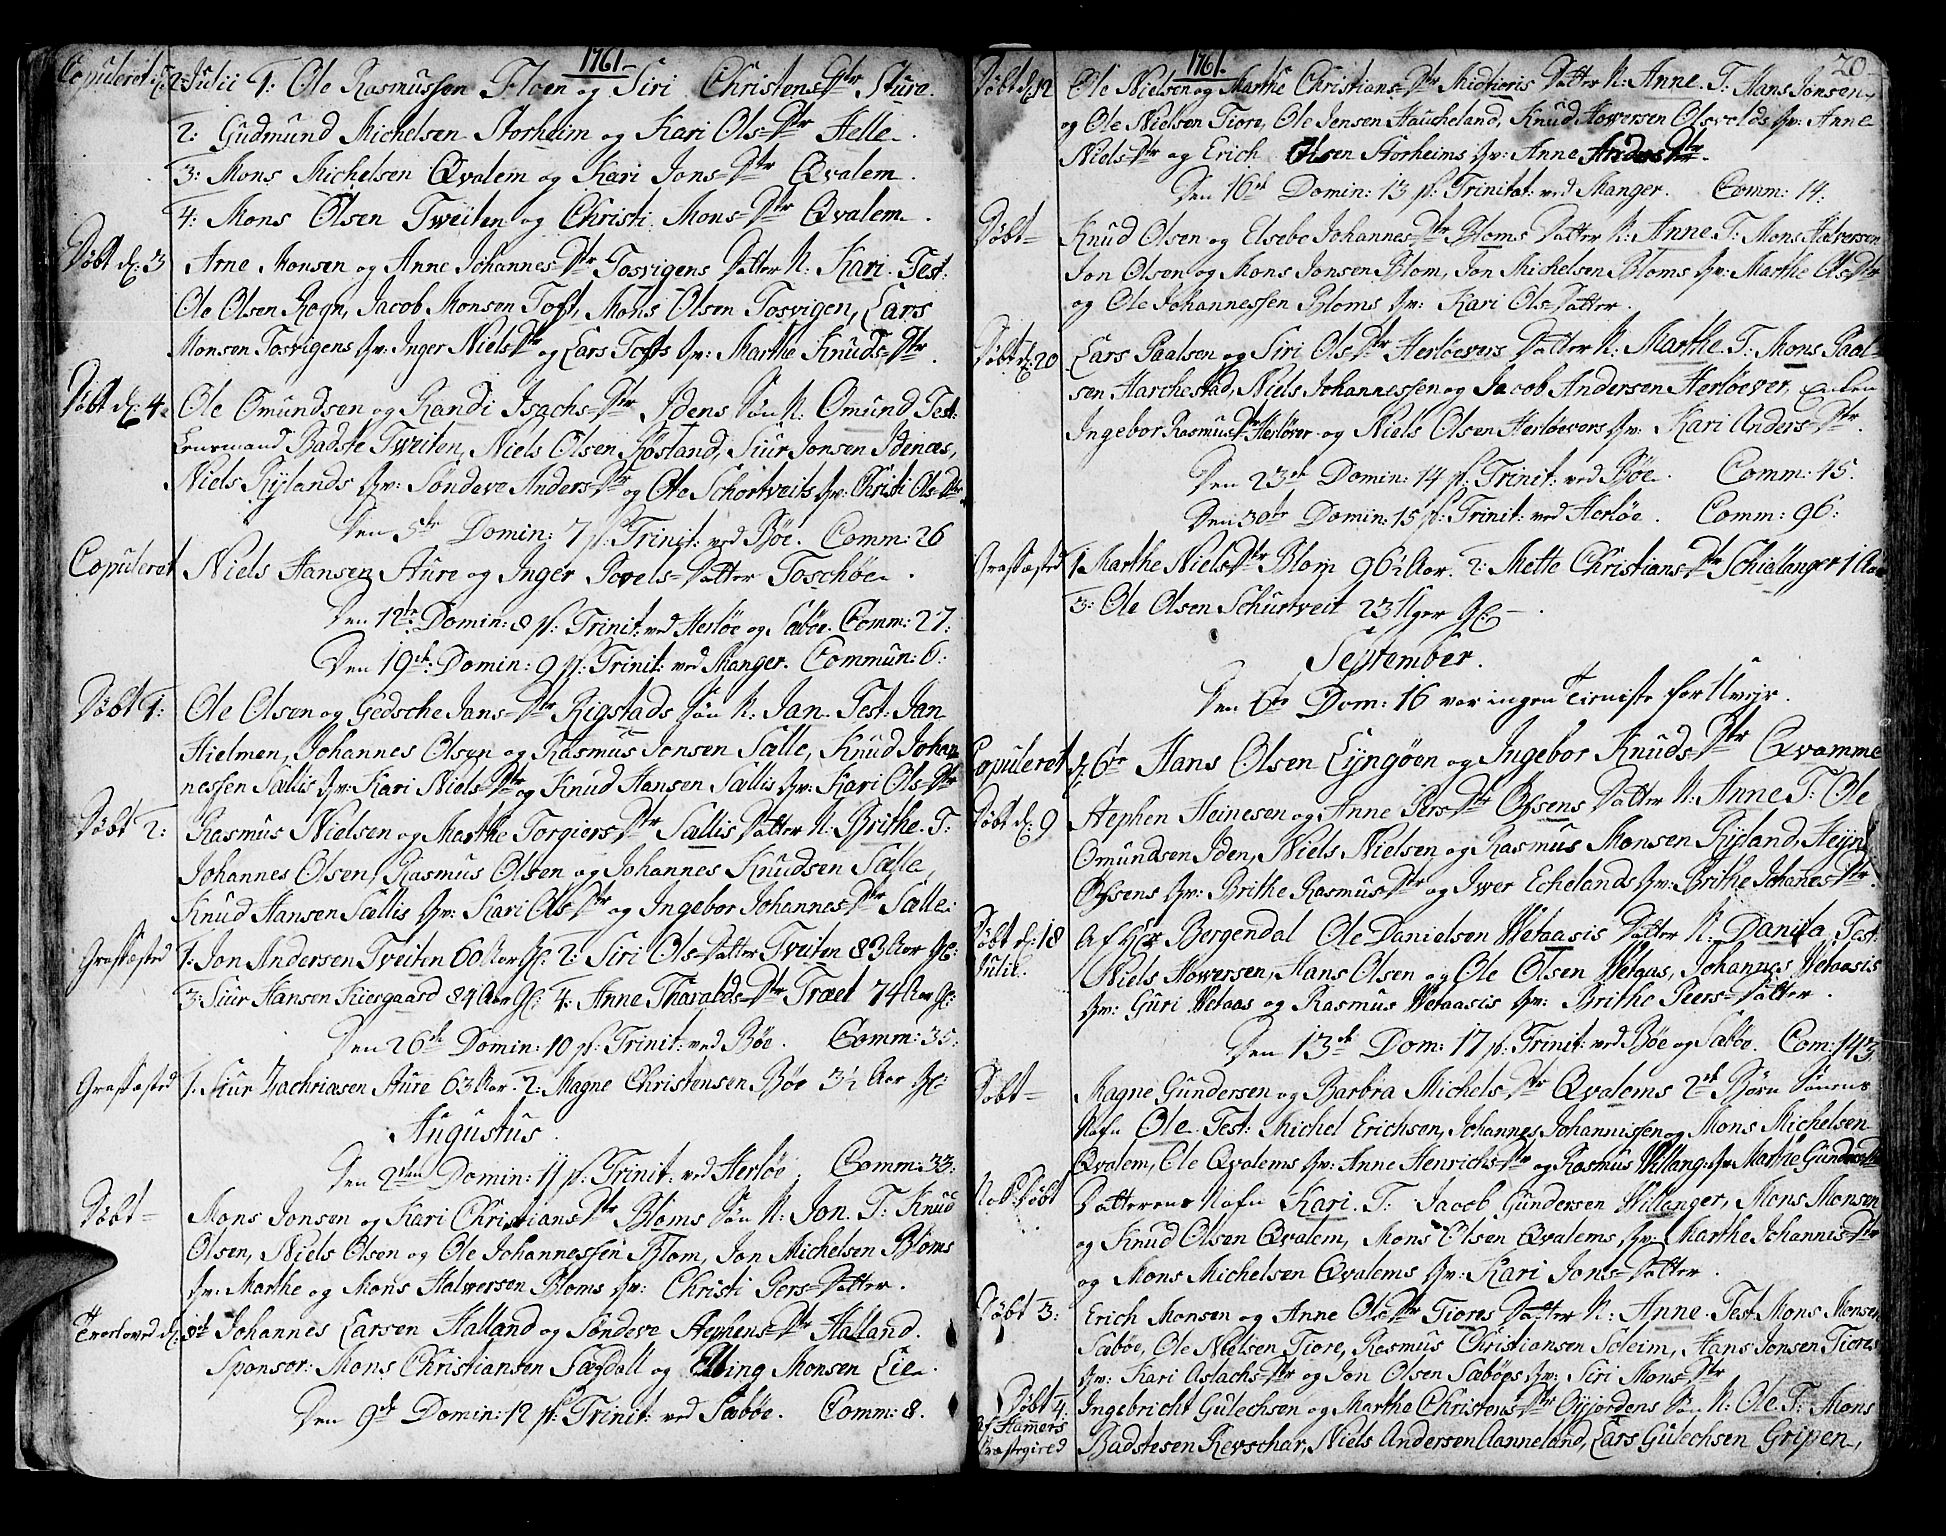 1761.
Copuleret d: 2 Julii 1: Ole Rasmussen Floen og Siri Christens Dtr Sture.
2: Gudmund Michelsen Storheim og Kari Ols=Dtr Helle.
3: Mons Michelsen Qvalem og Kari Jons=Dtr Qvalem.
4: Mons Olsen Tweiten og Christi Mons=Dtr Qvalem.
Døbt d: 3 Arne Monsen og Anne Johannes=Dtr Tosvigens Datter N: Kari. Test:
Ole Olsen Rogn, Jacob Monsen Toft, Mons Olsen Tosvigen, Lars
Monsen Tosvigens Hv: Inger Niels Dtr og Lars Tofts Hv: Marthe Knuds=Dtr.
Døbt d: 4 Ole Omundsen og Randi Isachs=Dtr Idens Søn N: Omund Test:
Lensmand Badste Tweiten, Niels Olsen Røsland, Siur Jonsen Idenæs,
Niels Rylands Hv: Søndeve Anders=Dtr og Ole Schortveits Hv: Christi Ols=Dtr
Den 5te Domin: 7 p: Trinit: ved Bøe. Comm: 26
Copuleret Niels Hansen Aure og Inger Povels=Datter Toschøe.
Den 12te Domin: 8 p: Trinit: ved Herløe og Sæbøe. Comm: 27:
Den 19de Domin: 9 p: Trinit: ved Manger. Commun: 6:
Døbt 1: Ole Olsen og Gedsche Jans=Dtr Rigstads Søn N: Jan. Test: Jan
Hielmen, Johannes Olsen og Rasmus Jonsen Sælle, Knud Johan
nessen Sællis Hv: Kari Niels Dtr og Knud Hansen Sællis Hv: Kari Ols=Dtr
Døbt 2: Rasmus Nielsen og Marthe Torgiers Dtr Sællis Datter N: Brithe. T:
Johannes Olsen, Rasmus Olsen og Johannes Knudsen Sælle,
Knud Hansen Sællis Hv: Kari Ols Dtr og Ingebor Johannes=Dtr Sælle:
Græsfæsted 1. Jon Andersen Tveiten 60 Aar Gl: 2: Siri Ols=Datter Tveiten 83 Aar Gl:
3: Siur Hansen Kiergaard 84 Aar Gl: 4: Anne Tharalds=Dtr Træet 74 Aar Gl:
Den 26de Domin: 10 p: Trinit: ved Bøe. Comm: 35:
Græsfæsted 1. Siur Zachriasen Aure 63 Aar. 2: Magne Christensen Bøe 3½ Aar Gl:
Augustus.
Den 2den Domin: 11 p: Trinit: ved Herløe Comm: 33:
Døbt= Mons Jonsen og Kari Christians Dtr Bloms Søn N: Jon. T: Knud
Olsen, Niels Olsen og Ole Johannessen Blom, Jon Michelsen Bloms
Hv: Marthe og Mons Halversen Bloms Hv: Christi Pers=Datter.
Troloved d: 8de Johannes Larsen Halland og Søndeve Stephens=Dtr Halland.
Sponsor: Mons Christiansen Sægdall og Elling Monsen Lie.
Den 9de Domin: 12 p: Trinit: ved Sæbøe. Comm: 8.
1761. 20
Døbt d: 12 Ole Nielsen og Marthe Christians=Dtr Midtioris Datter N: Anne. T: Hans Jonsen
og Ole Nielsen Tiore, Ole Jensen Haucheland, Knud Howersen Olsvolds Hv: Anne
Niels=Dtr og Erich Olsen Storheims Hv: Anne Anders Dtr.
Den 16de Domin: 13 p: Trinitat: ved Manger. Comm: 14.
Døbt= Knud Olsen og Elsebe Johannes=Dtr Bloms Datter N: Anne T: Mons Halversen
Jon Olsen og Mons Jonsen Blom, Jon Michelsen Bloms Hv: Marthe Ols Dtr
og Ole Johannessen Bloms Hv: Kari Ols=Datter.
Døbt d: 20 Lars Paalsen og Siri Ols Dtr Herløevers Datter N: Marthe. T: Mons Paal-
sen Harchestad, Niels Johannessen og Jacob Andersen Herløever,
Ingebor Rasmus Dtr Herløver og Niels Olsen Herløevers Hv: Kari Anders=Dtr.
Den 23de Domin: 14 p: Trinit: ved Bøe. Comm: 15.
Den 30te Domin: 15 p: Trinit: ved Herløe. Comm: 96:
Græsfæsted 1. Marthe Niels Dtr Blom 96½ Aar. 2: Mette Christians Dtr Schiellanger 1 Aar
3: Ole Olsen Schurtveit 23 Uger Gl: —.
September.
Den 6te Dom: 16 var ingen Tieniste for Uvejr.
Copuleret d: 6te Hans Olsen Lyngøen og Ingebor Knuds=Dtr Qvamme
Døbt d: 9 Stephen Heinesen og Anne Pers Dtr Øysens Datter N: Anne T: Ole
Omundsen Iden, Niels Nielsen og Rasmus Monsen Ryland, Heyne
Øysens Hv: Brithe Rasmus=Dtr og Iwer Echelands Hv: Brithe Johanes=Dtr.
Døbt d: 18 Julii. Af Hr Bergendal Ole Danielsen Wetaasis Datter N: Danila. Test:
Niels Howersen, Hans Olsen og Ole Olsen Wetaas, Johannes Wetaasis
Hv: Guri Wetaas og Rasmus Wetaasis Hv: Brithe Peers=Datter.
Den 13de Dom: 17 p: Trinit: ved Bøe og Sæbøe. Com: 143
Døbt= Magne Gundersen og Barbra Michels=Dtr Qvalems 2de Børn Sønens
Nafn Ole. Test: Michel Erichsen, Johannes Johannissen og Mons Michelsen
Qvalem, Ole Qvalems Hv: Anne Henrichs=Dtr og Rasmus Willang: Hv: Marthe Gunders Dtr
Døbt Datterens Nafn Kari. T: Jacob Gundersen Willanger, Mons Monsen
og Knud Olsen Qvalem, Mons Olsen Qvalems Hv: Marthe Johannis=Dtr
og Mons Michelsen Qvalems Hv: Kari Jons=Datter.
Døbt 3: Erich Monsen og Anne Ols Dtr Tiores Datter N: Anne. Test. Mons Monsen
Sæbøe, Ole Nielsen Tiore, Rasmus Christiansen Soleim, Hans Jonsen Tiores
Hv: Kari Aslachs=Dtr og Jon Olsen Sæbøes Hv: Siri Mons=Dtr
Døbt 4. Ingebricht Gulechsen og Marthe Christens Dtr Oyjordens Søn N: Ole. T: Mons
Af Hamers Præstegired Badstesen Revschar, Niels Andersen Aanneland, Lars Gulechsen Gripen,